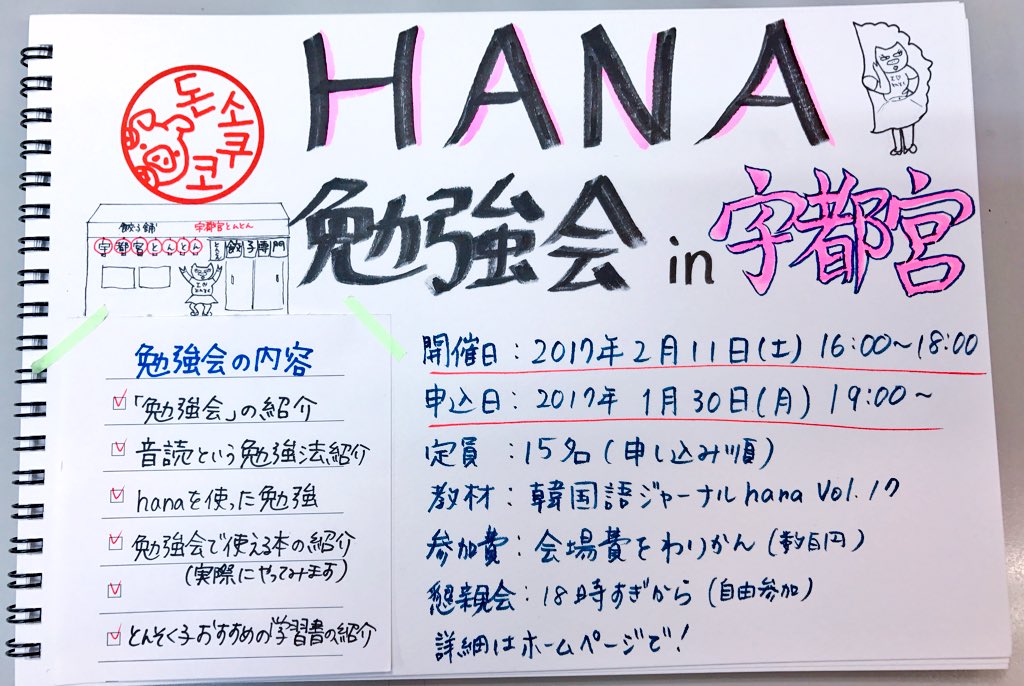 HANA
勉強会 in 宇都宮
돈소쿠코
餃子舗 宇都宮とんとん
宇都宮とんとん
餃子専門
勉強会の内容
「勉強会」の紹介
音読という勉強法紹介
hanaを使った勉強
勉強会で使える本の紹介
(実際にやってみます)
とんそく子おすすめの学習書の紹介
開催日：2017年2月11日(土) 16:00〜18:00
申込日：2017年 1月30日(月) 19:00〜
定員：15名(申し込み順)
教材：韓国語ジャーナルhana Vol.17
参加費：会場費をわりかん(数百円)
懇親会：18時すぎから(自由参加)
詳細はホームページで！